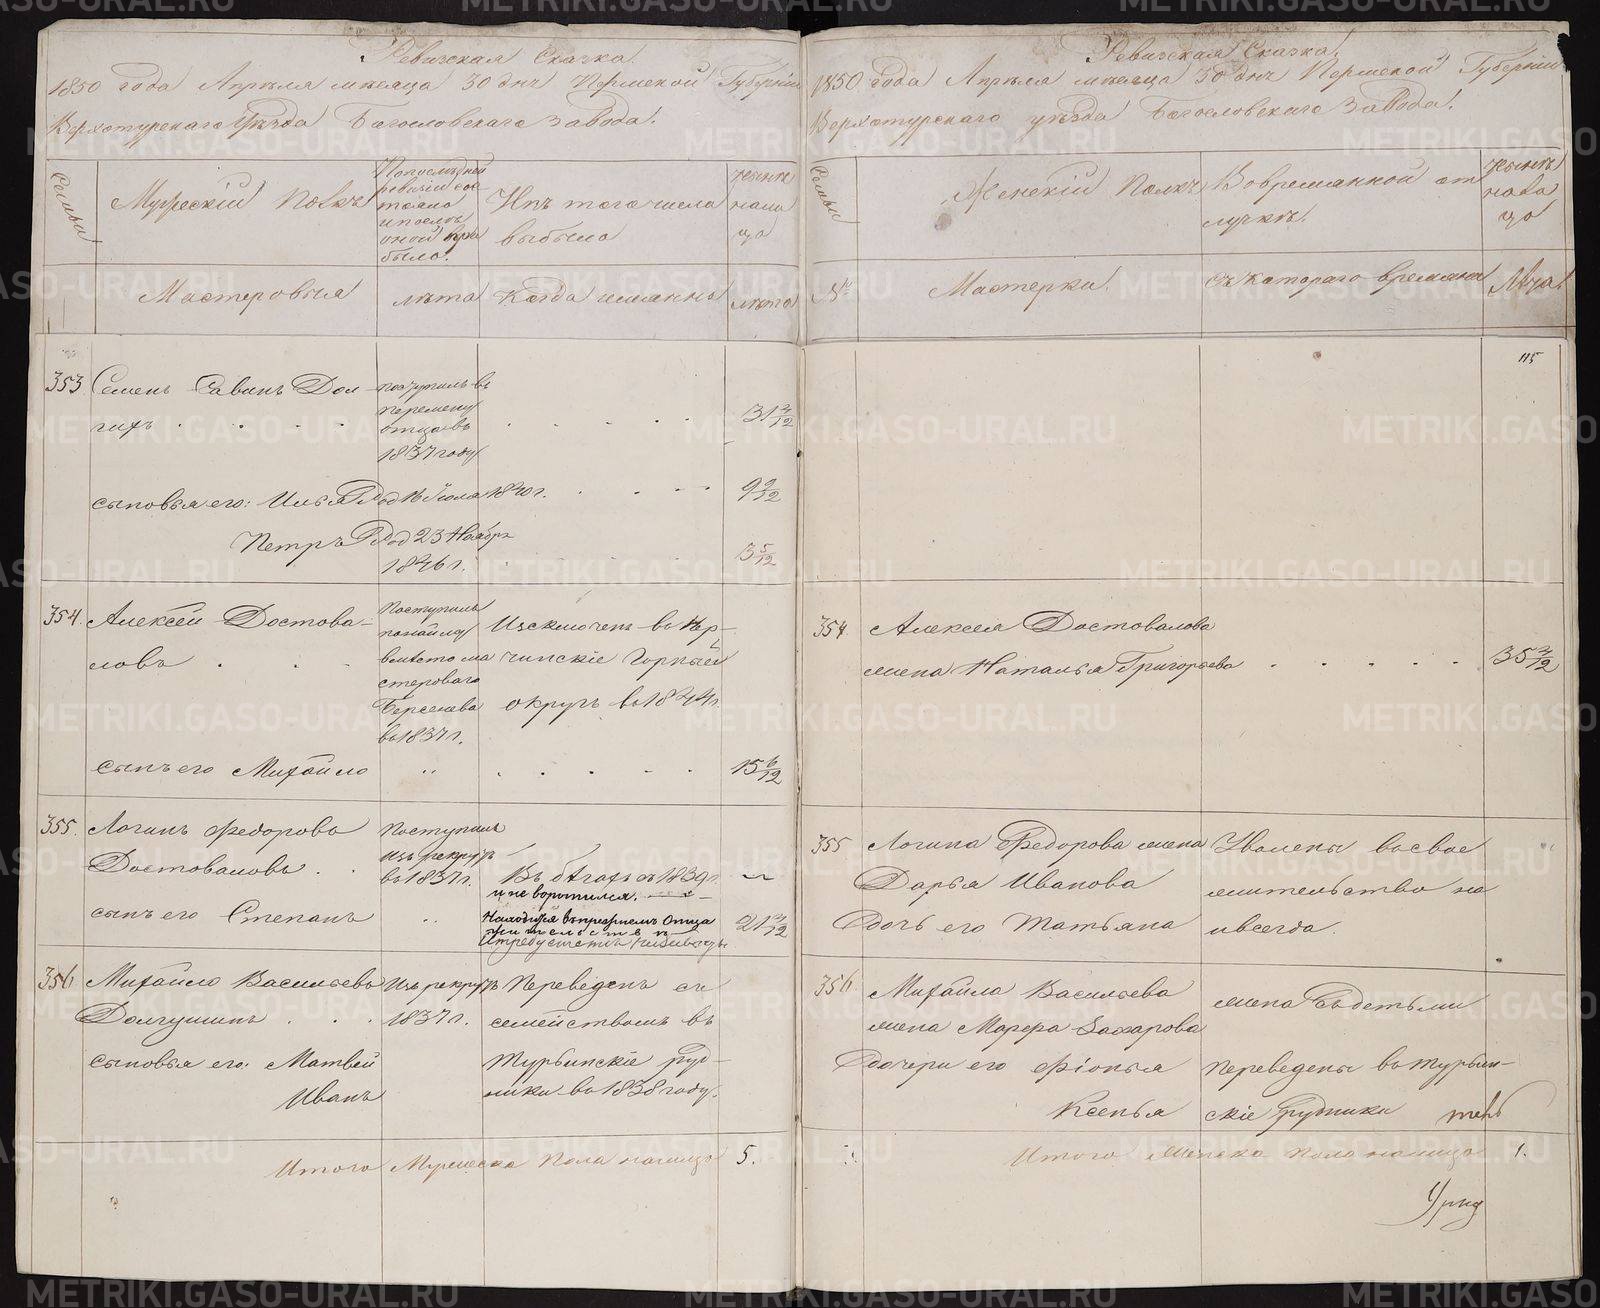 Ревизская Сказка.
1850 года Апреля месяца 30 дня Пермской Губернии
Верхотурскаго Уезда Богословскаго Завода.
Семьи
Мужескій Полъ
По последней
ревизіи сос
тояло
и после
оной при
было.
Изъ того числа
выбыло
ныне
нали
цо
Мастеровыя
лета
Когда именно
лета
353
Семенъ Савинъ Дол
гихъ
поступилъ въ
перемену
отца въ
1837 году
31 3/12
сыновья его: Илья Род Іюля 1840 г.
9 9/12
Петръ Род 23 Ноября
1846 г.
3 5/12
354.
Алексей Достова-
ловъ
Поступилъ
по найму
вместо ма
стероваго
Берсенева
въ 1837 г.
Исключенъ въ Нер-
чинскіе Горный
округъ въ 1844 г.
сынъ его Михайло
"
15 6/12
355.
Логинъ Федоровъ
Достоваловъ
Поступилъ
изъ рекрутъ
въ 1837 г.
Въ бегахъ съ 1839 г.
и не воротился.
сынъ его Степанъ
"
Находится въ прежнемъ Отца
жительстве
21 3/12
356
Михайло Васильевъ
Долгушинъ
Изъ рекрутъ
1837 г.
Переведенъ съ
семействомъ въ
Турьинскіе руд-
ники въ 1838 году.
сыновья его: Матвей
Иванъ
Итого Мужеска Пола налицо 5.
Ревизская Сказка.
1850 года Апреля месяца 30 дня Пермской Губерніи
Верхотурскаго уезда Богословскаго Завода.
Семьи
Женскій Полъ
Во временной от
лучке.
ныне
нали
цо
№
Мастерки.
Съ котораго времяни
Лета
115
354
Алексея Достовалова
жена Наталья Григорьева
35 3/12
355
Логина Федорова жена
Дарья Иванова
дочь его Татьяна
Уволены во свое
жительство на
всегда.
356
Михайла Васильева
жена Марфа Захарова
дочери его Фіонья
Ксенья
жена съ детьми
переведены въ Турьин-
скіе рудники
Итого Женска пола налицо 1.
METRIKI.GASO-URAL.RU